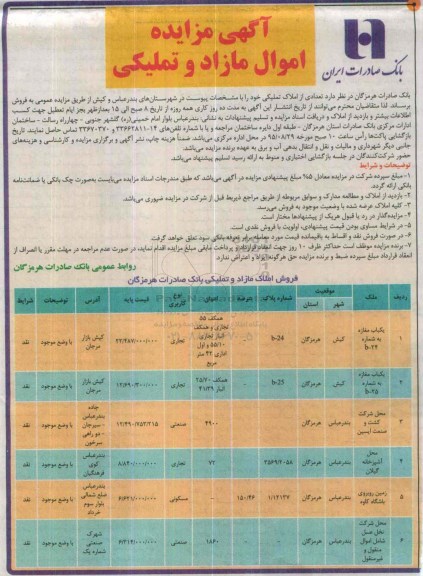 آگهی مزایده
اموال مازاد و تملیکی
بانک صادرات ایران
بانک صادرات هرمزگان در نظر دارد تعدادی از املاک تملیکی خود را با مشخصات پیوست در شهرستان‌های بندرعباس و کیش از طریق مزایده عمومی به فروش
برساند. لذا متقاضیان محترم می‌توانند از تاریخ انتشار این آگهی به مدت ده روز کاری همه روزه از تاریخ ۸ صبح الی ۱۵ بعدازظهر بجز ایام تعطیل جهت کسب
اطلاعات بیشتر و بازدید از املاک و دریافت اسناد مزایده و تسلیم پیشنهادات به نشانی: بندرعباس بلوار امام خمینی(ره) گلشهر جنوبی - چهارراه رسالت - ساختمان
ادارات مرکزی بانک صادرات استان هرمزگان - طبقه اول دایره ساختمان مراجعه و یا با شماره تلفن‌های
بازگشایی پاکت‌ها رأس ساعت ۱۰ صبح مورخه ۹۵/۰۸/۲۹ در محل اداره مرکزی می‌باشد. ضمناً هزینه چاپ نشر آگهی و برگزاری مزایده و کارشناسی و هزینه‌های
جانبی دیگر شهرداری و مالیات و نقل و انتقال بدهی آب و برق به عهده برنده مزایده می‌باشد.
حضور شرکت‌کنندگان در جلسه بازگشایی اختیاری و منوط به ارائه رسید تسلیم پیشنهاد می‌باشد.
توضیحات و شرایط
۱- مبلغ سپرده شرکت در مزایده معادل ۵% مبلغ پیشنهادی مزایده در آگهی می‌باشد که طبق مندرجات اسناد مزایده می‌بایست به‌صورت چک بانکی یا ضمانتنامه
بانکی ارائه گردد.
۲- بازدید از املاک و مطالعه مدارک و سوابق مربوطه از طریق مراجع ذیربط قبل از شرکت در مزایده ضروری می‌باشد.
۳- کلیه املاک عرضه شده با وضعیت موجود به فروش می‌رسد.
۴- مزایده‌گذار در رد یا قبول هریک از پیشنهادها مختار است.
۵- در شرایط مساوی بودن قیمت پیشنهادی، اولویت با فروش نقدی است.
۶- در صورت فروش نقد و اقساط به باقیمانده قیمت مورد معامله برابر تعرفه بانکی سود تعلق خواهد گرفت.
۷- برنده مزایده موظف است حداکثر ظرف ۱۰ روز جهت انعقاد قرارداد و پرداخت مابقی مبلغ مزایده اقدام نماید، در صورت عدم مراجعه در مهلت مقرر یا انصراف از
انعقاد قرارداد مبلغ سپرده ضبط و برنده مزایده حق هرگونه ایراد و اعتراض ندارد.
روابط عمومی بانک صادرات هرمزگان
فروش املاک مازاد و تملیکی بانک صادرات هرمزگان
ردیف ملک موقعیت شهر استان شماره پلاک عرصه اعیان نوع کاربری قیمت پایه آدرس توضیحات شرایط
۱ یکباب مغازه به شماره b-۲۴ کیش هرمزگان b-24 تجاری کیش بازار مرجان با وضع موجود نقد
۲ یکباب مغازه به شماره b-۲۵ کیش هرمزگان b-25 تجاری کیش بازار مرجان با وضع موجود نقد
۳ محل شرکت کشت و صنعت بندرعباس هرمزگان ۴۹۰۰ صنعتی جاده بندرعباس - سیرجان - دو راهی سرخون با وضع موجود نقد
۴ محل آشپزخانه گیلان بندرعباس هرمزگان ۷۲ تجاری بندرعباس کوی فرهنگیان با وضع موجود نقد
۵ باشگاه کاوه بندرعباس هرمزگان ۱۵۰/۴۶ - مسکونی بندرعباس ضلع شمالی بلوار سوم خرداد با وضع موجود نقد
۶ محل شرکت شامل اموال منقول و غیرمنقول بندرعباس هرمزگان ۱۸۶۰ صنعتی شهرک صنعتی شماره یک با وضع موجود نقد